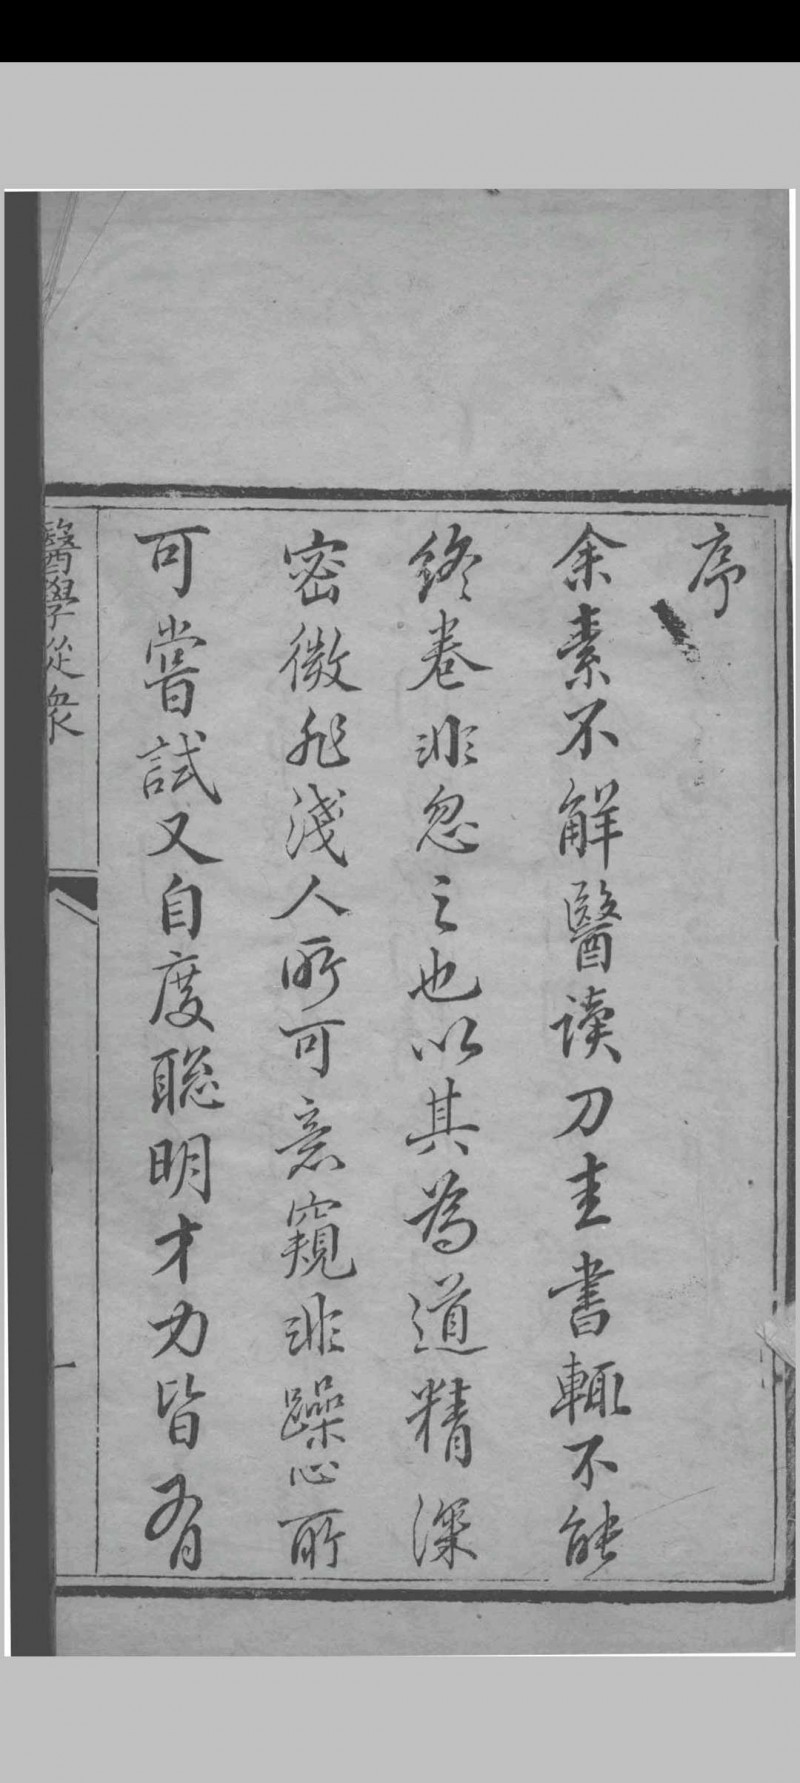 序
余素不解醫读刀圭書輒不能
終卷非忽之也以其為道精深
密微非淺人所可意窺非躁心所
可嘗試又自度聡明才力皆有
醫學從衆
一